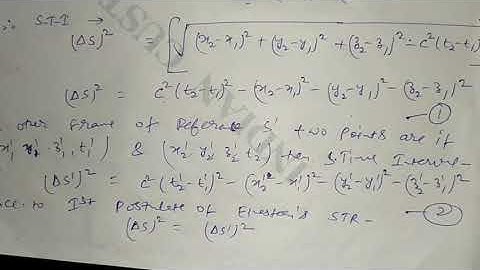 ∴ S.T.I →
(ΔS)² = [√(x₂-x₁)² + (y₂-y₁)² + (z₂-z₁)² ÷ c²(t₂-t₁)²
(ΔS)² = c²(t₂-t₁)² - (x₂-x₁)² - (y₂-y₁)² - (z₂-z₁)²
①
other frame of Reference S' two points are if
x₁' y₂' z₁', t₁') & (x₂' y₂' z₂' t₂') then S.Time
(ΔS')² = c²(t₂'-t₁')² - (x₂'-x₁')² - (y₂'-y₁')² - (z₂'-z₁')²
②
to Ist postulate of Einstein's STR -
(ΔS)² = (ΔS')²
INDIAN